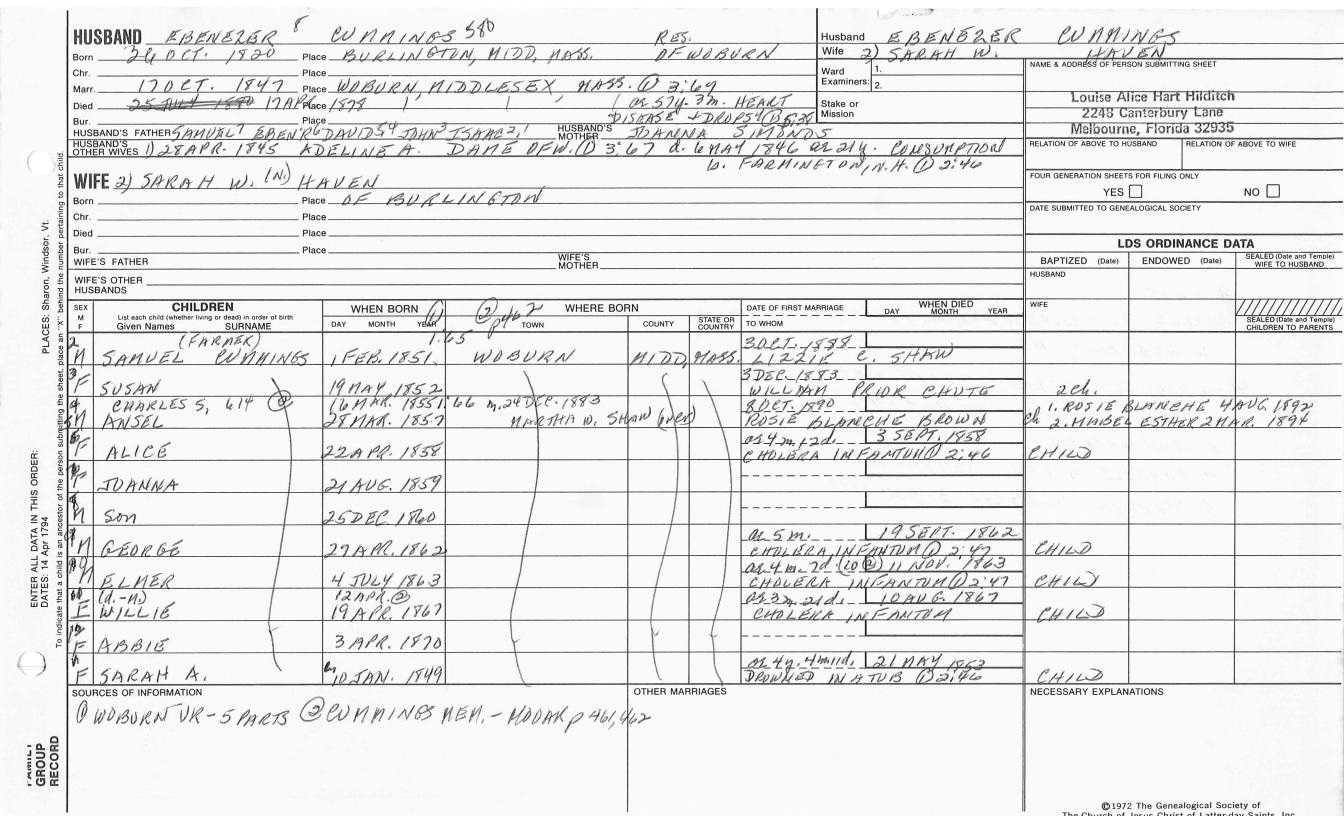 HUSBAND EBENEZER 8 CUMMINGS 580 RES.
Born 26 OCT. 1820 Place BURLINGTON, MIDD, MASS. OF WOBURN
Chr. Place
Marr. 17 OCT. 1847 Place WOBURN, MIDDLESEX, MASS. ① 3:69
Died 25 JULY 1880 17 APR. Place 1878 1 1 1 ae 57y. 3m. HEART
Bur. Place DISEASE + DROPSY
HUSBAND'S FATHER SAMUEL7 EBEN'R6 DAVID5,4 JOHN3 ISAAC2,1 HUSBAND'S MOTHER JOANNA SIMONDS
HUSBAND'S OTHER WIVES 1) 28 APR. 1845 ADELINE A. DAME OF W. ① 3:67 d. 6 MAY 1846 ae 21y. CONSUMPTION
b. FARMINGTON, N.H. ① 2:46
WIFE 2) SARAH W. (N.) HAVEN
Born Place OF BURLINGTON
Chr. Place
Died Place
Bur. Place
WIFE'S FATHER WIFE'S MOTHER
WIFE'S OTHER HUSBANDS
Husband EBENEZER CUMMINGS
Wife 2) SARAH W. HAVEN
Ward 1.
Examiners: 2.
Stake or Mission
NAME & ADDRESS OF PERSON SUBMITTING SHEET
Louise Alice Hart Hilditch
2248 Canterbury Lane
Melbourne, Florida 32935
RELATION OF ABOVE TO HUSBAND RELATION OF ABOVE TO WIFE
FOUR GENERATION SHEETS FOR FILING ONLY
YES NO
DATE SUBMITTED TO GENEALOGICAL SOCIETY
LDS ORDINANCE DATA
BAPTIZED (Date) ENDOWED (Date) SEALED (Date and Temple) WIFE TO HUSBAND
HUSBAND
WIFE
SEALED (Date and Temple) CHILDREN TO PARENTS
SEX M F CHILDREN
List each child (whether living or dead) in order of birth
Given Names SURNAME
WHEN BORN DAY MONTH YEAR ① 1:65
② p462 WHERE BORN TOWN COUNTY STATE OR COUNTRY
DATE OF FIRST MARRIAGE TO WHOM
WHEN DIED DAY MONTH YEAR
2 (FARMER) 3 OCT. 1888
M SAMUEL CUMMINGS 1 FEB. 1851. WOBURN MIDD, MASS. LIZZIE C. SHAW
3 3 DEC. 1883
F SUSAN 19 MAY 1852 WILLIAM PRIOR CHUTE 2 ch.
4 CHARLES S, 614 ② 16 MAR. 1855 1:66 m. 24 DEC. 1883 8 OCT. 1890 1. ROSIE BLANCHE 4 AUG. 1892
5 M ANSEL 28 MAR. 1857 MARTHA W. SHAW (over) ROSIE BLANCHE BROWN ch 2. MABEL ESTHER 2 MAR. 1894
6 ae 4 m. 12 d. 3 SEPT. 1858
F ALICE 22 APR. 1858 CHOLERA INFANTUM ① 2:46 CHILD
F JOANNA 21 AUG. 1859
8
M Son 25 DEC. 1860
9 ae 5 m. 19 SEPT. 1862
M GEORGE 27 APR. 1862 CHOLERA INFANTUM ① 2:47 CHILD
ae 4 m. 7 d. (10 ②) 11 NOV. 1863
M ELMER 4 JULY 1863 CHOLERA INFANTUM ① 2:47 CHILD
(d.-M) 12 APR. ② ae 3 m. 21 d. 10 AUG. 1867
F WILLIE 19 APR. 1867 CHOLERA INFANTUM CHILD
F ABBIE 3 APR. 1870
1 ae 4y. 4m 11d. 21 MAY 1853
F SARAH A. 10 JAN. 1849 DROWNED IN A TUB ① 2:46 CHILD
SOURCES OF INFORMATION OTHER MARRIAGES NECESSARY EXPLANATIONS
① WOBURN VR - 5 PARTS ② CUMMINGS MEM. - MOOAR p 461,462
©1972 The Genealogical Society of
The Church of Jesus Christ of Latter-day Saints, Inc.
ENTER ALL DATA IN THIS ORDER:
PLACES: Sharon, Windsor, Vt.
DATES: 14 Apr 1794
To indicate that a child is an ancestor of the person submitting the sheet, place an "X" behind the number pertaining to that child.
FAMILY GROUP RECORD